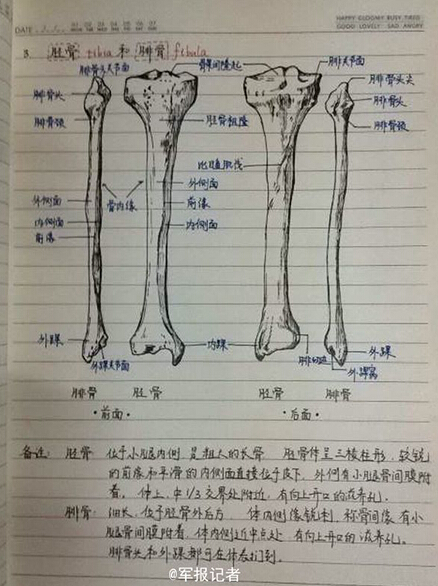 DATE
HAPPY CLOGMY BUSY TIRED
GOOD LOVELY SAD ANGRY
3 胫骨 tibia 和 腓骨 fibula
腓骨头关节面
髁间隆起
腓关节面
腓骨头尖
腓骨头
腓骨头
腓骨颈
胫骨粗隆
腓骨颈
比目鱼肌线
外侧面
骨内缘
外侧面
前缘
内侧面
前缘
内侧面
外踝
内踝
腓切迹
外踝
外踝关节面
外踝窝
腓骨 胫骨 胫骨 腓骨
·前面· ·后面·
备注: 胫骨: 位于小腿内侧 是粗大的长骨 胫骨体呈三棱柱形, 较锐
的前缘和平滑的内侧面直接位于皮下, 外侧有小腿骨间膜附
着。体上、中1/3交界处附近, 有向上开口的滋养孔。
腓骨: 细长, 位于胫骨外后方 体内侧缘锐利, 称骨间缘 有小
腿骨间膜附着, 体内侧近中点处, 有向上开口的滋养孔。
腓骨头和外踝都可在体表扪到。
@军报记者